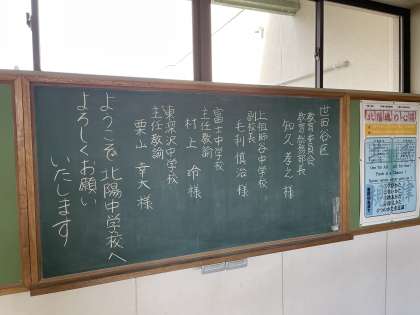 世田谷区
教育委員会
教育総務部長
知久 孝之 様
上祖師谷中学校
副校長
毛利 慎治 様
富士中学校
主任教諭
村上 命 様
東深沢中学校
主任教諭
栗山 幸大 様
ようこそ 北陽中学校へ
よろしくお願い
いたします